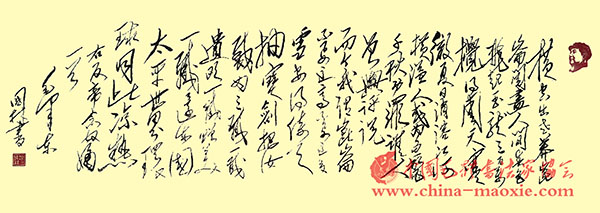 横空出世莽昆
崙阅尽人间春色
飞起玉龙三百万
搅得周天寒
彻夏日消溶江河
横溢人或为鱼鳖
千秋功罪谁人
曾与评说
而今我谓昆崙
不要这高不要这多
雪安得倚天
抽宝剑把汝
裁为三截一截
遗欧一截赠美
一截还东国
太平世界环
球同此凉热
一首
毛泽东
书
中国毛体书法家协会
www.china-maoxie.com